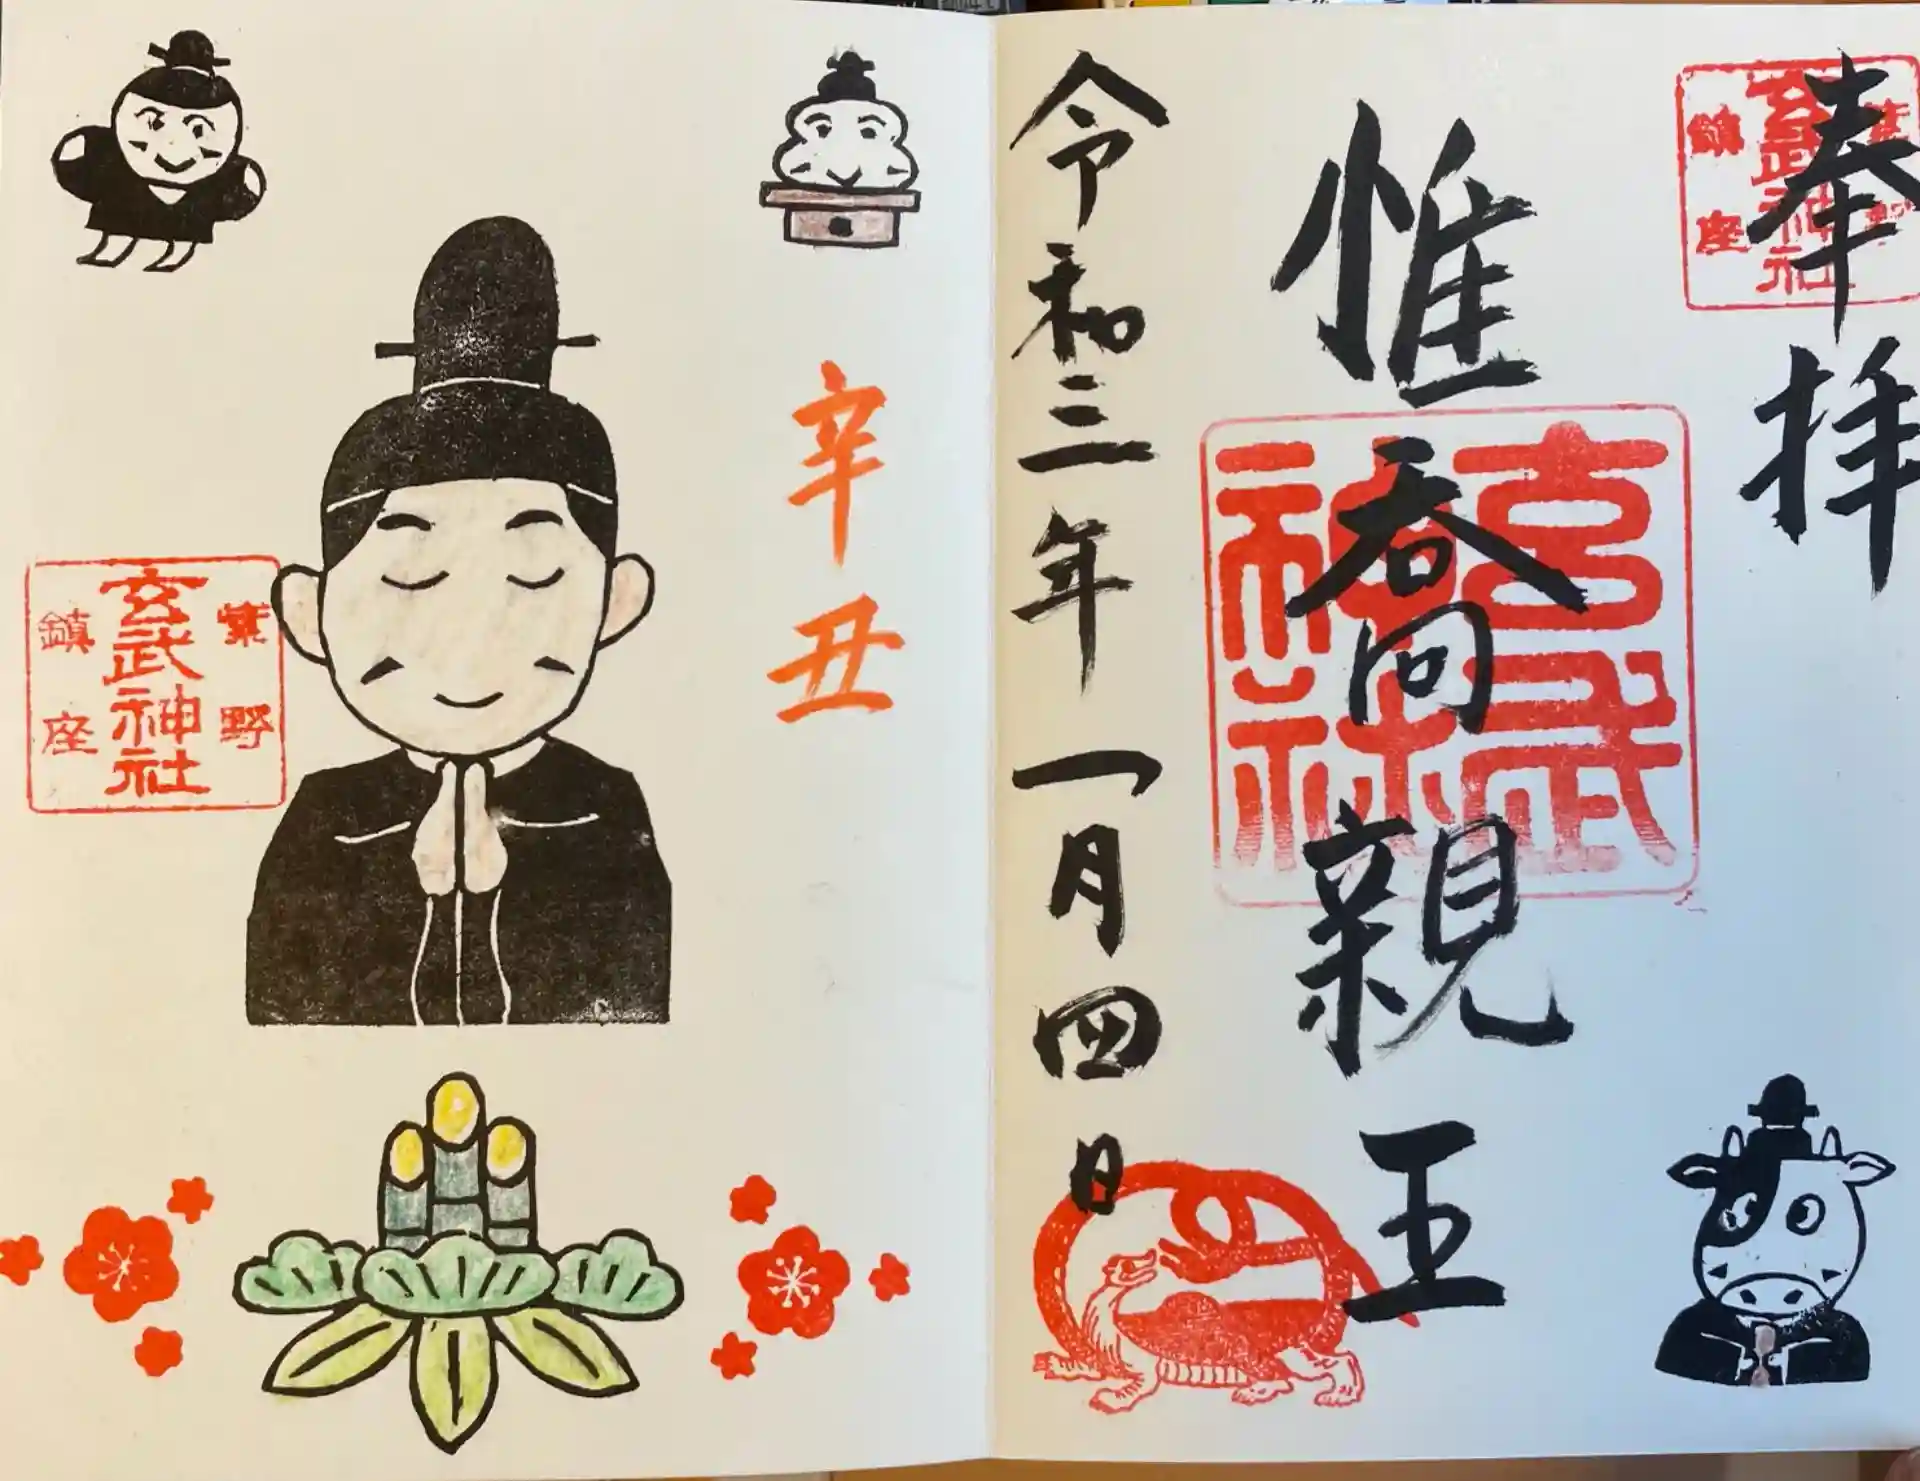 奉拝
紫野
玄武神社
鎮座
惟喬親王
玄武
神社
令和三年一月四日
辛丑
紫野
玄武神社
鎮座